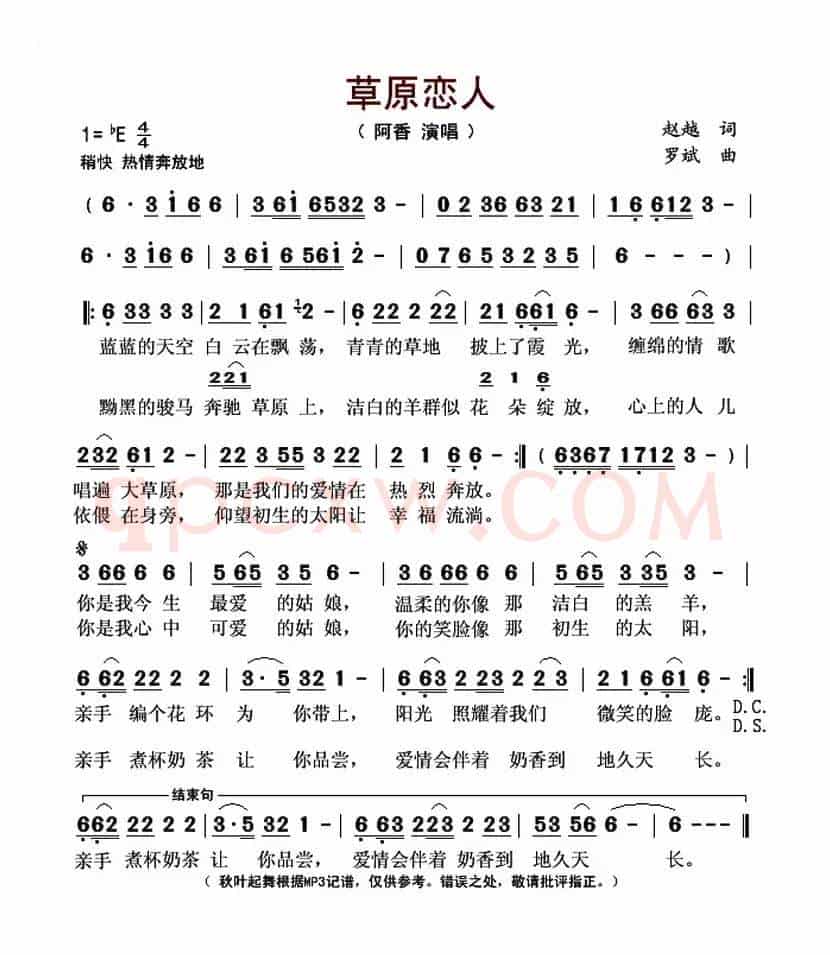 草原恋人
( 阿香 演唱 )
1= ♭E 4/4
赵越 词
稍快 热情奔放地
罗斌 曲
( 6 · 3 1 6 6 | 3 61 6532 3 - | 0 2 36 63 21 | 1 6 612 3 - |
6 · 3 16 6 | 3 61 6 561 2 - | 0 7 6 5 3 2 3 5 | 6 - - - ) |
‖: 6 33 3 3 | 2 1 61 12 - | 6 22 2 22 | 21 661 6 - | 3 66 63 3 |
蓝蓝的天空 白 云在飘 荡, 青青的草地 披上了霞 光, 缠绵的情 歌
221 2 1 6
黝黑的骏马 奔驰 草原 上, 洁白的羊群似 花 朵 绽 放, 心上的人 儿
232 61 2 - | 22 3 55 3 22 | 2 1 6 6 - :‖ ( 6367 1712 3 - ) |
唱遍 大草原, 那是我们的爱情在 热 烈 奔放。
依偎 在身旁, 仰望初生的太阳让 幸 福 流淌。
qpcxw.COM
3 66 6 6 | 5 65 3 5 6 - | 3 6 66 6 6 | 5 65 3 35 3 - |
你是我今 生 最爱 的姑 娘, 温柔的你像 那 洁白 的羔 羊,
你是我心 中 可爱 的姑 娘, 你的笑脸像 那 初生 的太 阳,
6 62 22 2 2 | 3 · 5 32 1 - | 6 63 2 23 2 23 | 21 6 61 6 - :‖
亲手 编个花 环 为 你带上, 阳光 照耀着我们 微笑的脸 庞。 D.C.
D.S.
亲手 煮杯奶 茶 让 你品尝, 爱情会伴着 奶香到 地久天 长。
结束句
662 22 2 2 | 3 · 5 32 1 - | 6 63 223 23 | 53 56 6 - | 6 - - - ‖
亲手 煮杯奶茶 让 你品尝, 爱情会伴着 奶香到 地久天 长。
( 秋叶起舞根据MP3记谱,仅供参考。错误之处,敬请批评指正。)